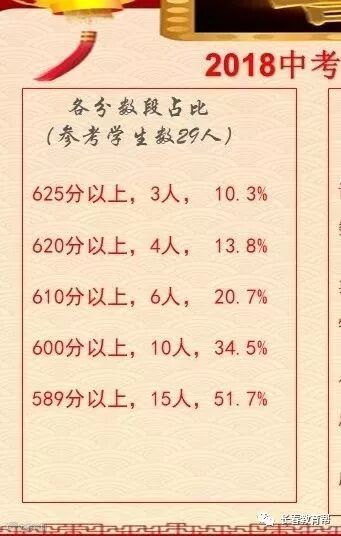 2018中考
各分数段占比
（参考学生数29人）
625分以上，3人， 10.3%
620分以上，4人， 13.8%
610分以上，6人， 20.7%
600分以上，10人，34.5%
589分以上，15人，51.7%
长春教育帮